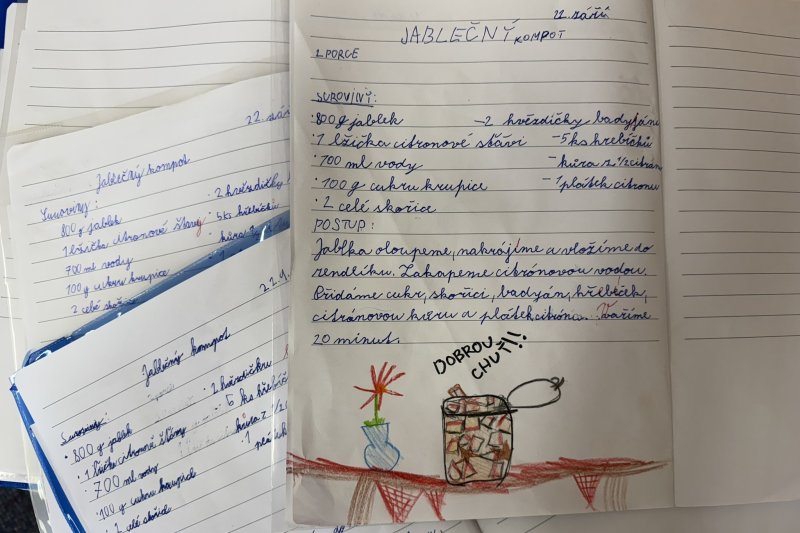 22. září
JABLEČNÝ KOMPOT
1 PORCE
SUROVINY:
·800g jablek -2 hvězdičky badyjáne
·1 lžička citronové šťávi -5ks hřebíčků
·700 ml vody -kůra z 1/2 citrón
·100g cukru krupice -1 plátek citronu
·2 celé skořice
POSTUP:
Jablka oloupeme, nakrájíme a vložíme do
rendlíku. Zakapeme citrónovou vodou.
Přidáme cukr, skořici, badyán, hřebíček,
citrónovou kůru a plátek citrónu. Vaříme
20 minut.
DOBROU
CHUŤ!!
22. zá
Jablečný kompot
Suroviny:
800 g jablek · 2 hvězdičky
1 lžička citronové šťávy · 5 ks hřebíčků
700 ml vody · kůra z
100 g cukru krupice
2 celé skoř
22.9.
Jablečný kompot
Suroviny:
· 800 g jablek · 2 hvězdičku
· 1 lžička citronové šťávy · 5 ks hřebíč
· 700 ml vody kůra z 1/2
· 100 g cukru krupice · 1 plátek
· 2 celé skořice